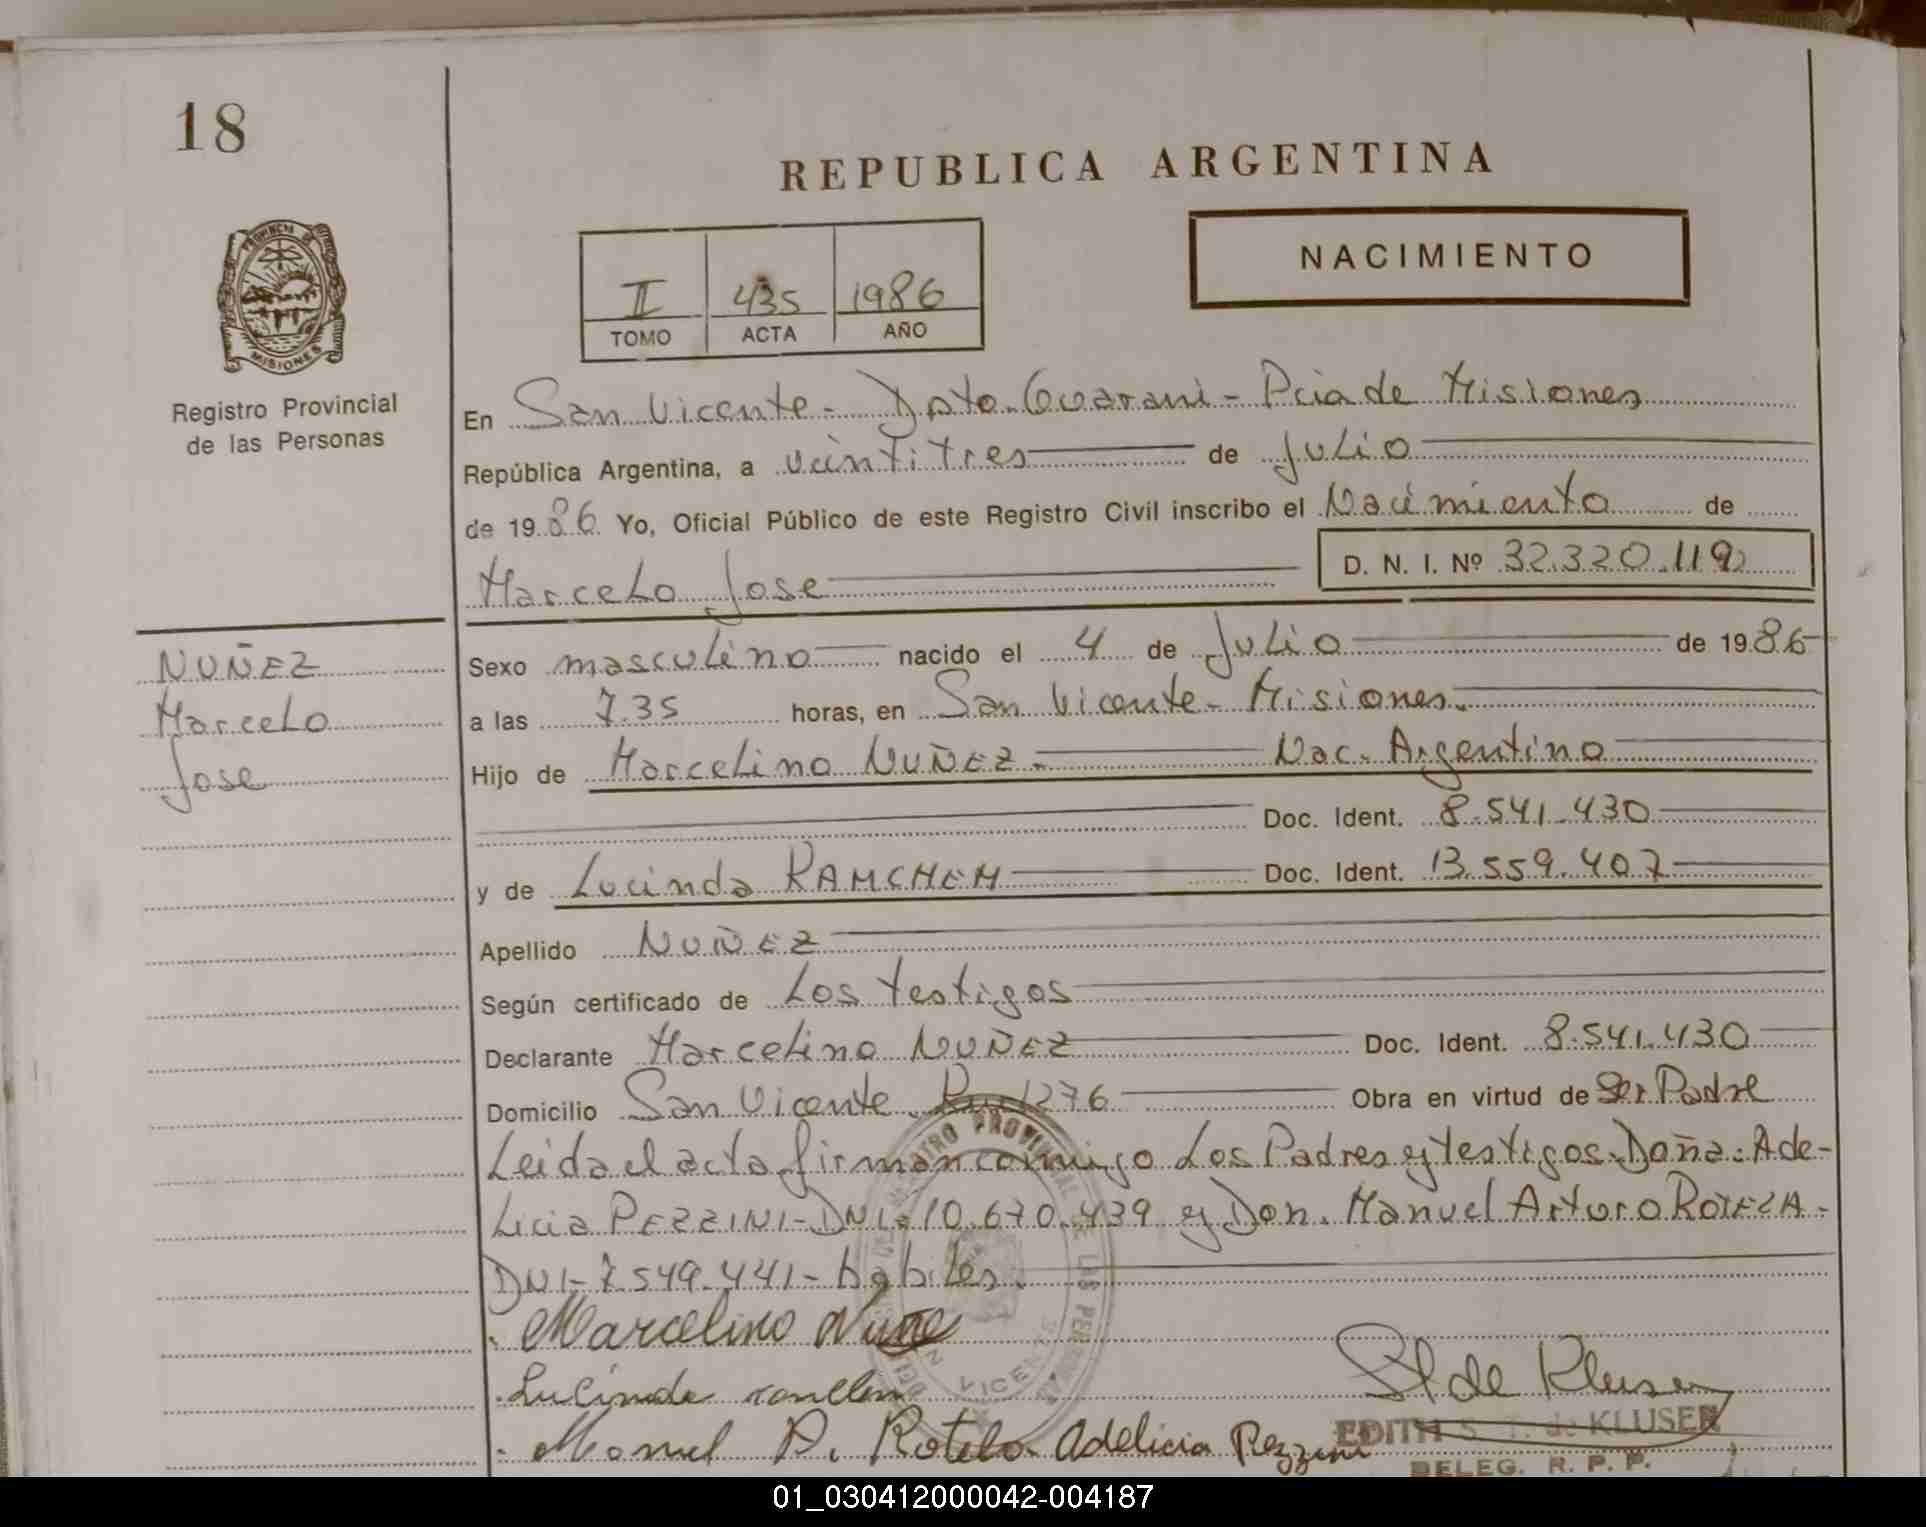 18
REPUBLICA ARGENTINA
PROVINCIA DE
MISIONES
II 435 1986
TOMO ACTA AÑO
NACIMIENTO
Registro Provincial
de las Personas
En San Vicente - Dpto. Guarani - Pcia de Misiones
República Argentina, a veintitres de Julio
de 1986 Yo, Oficial Público de este Registro Civil inscribo el Nacimiento de
Marcelo Jose D. N. I. Nº 32.320.119
NUÑEZ
Marcelo
Jose
Sexo masculino nacido el 4 de Julio de 1986
a las 7.35 horas, en San Vicente - Misiones.
Hijo de Marcelino NUÑEZ - Nac. Argentino
Doc. Ident. 8.541.430
y de Lucinda RAMCHEM Doc. Ident. 13.559.407
Apellido NUÑEZ
Según certificado de Los testigos
Declarante Marcelino NUÑEZ Doc. Ident. 8.541.430
Domicilio San Vicente 1276 Obra en virtud de Ser Padre
Leida el acta firman conmigo Los Padres y testigos. Doña: Ade-
Licia PEZZINI - DNI- 10.670.439 y Don. Manuel Arturo
DNI- 7.549.441 - habiles.
Marcelino Nuñe
Lucinda
Manuel A. Rotela Adelicia Pezzini
de Klusen
EDITH S. T. de KLUSEN
DELEG. R. P. P.
01_030412000042-004187